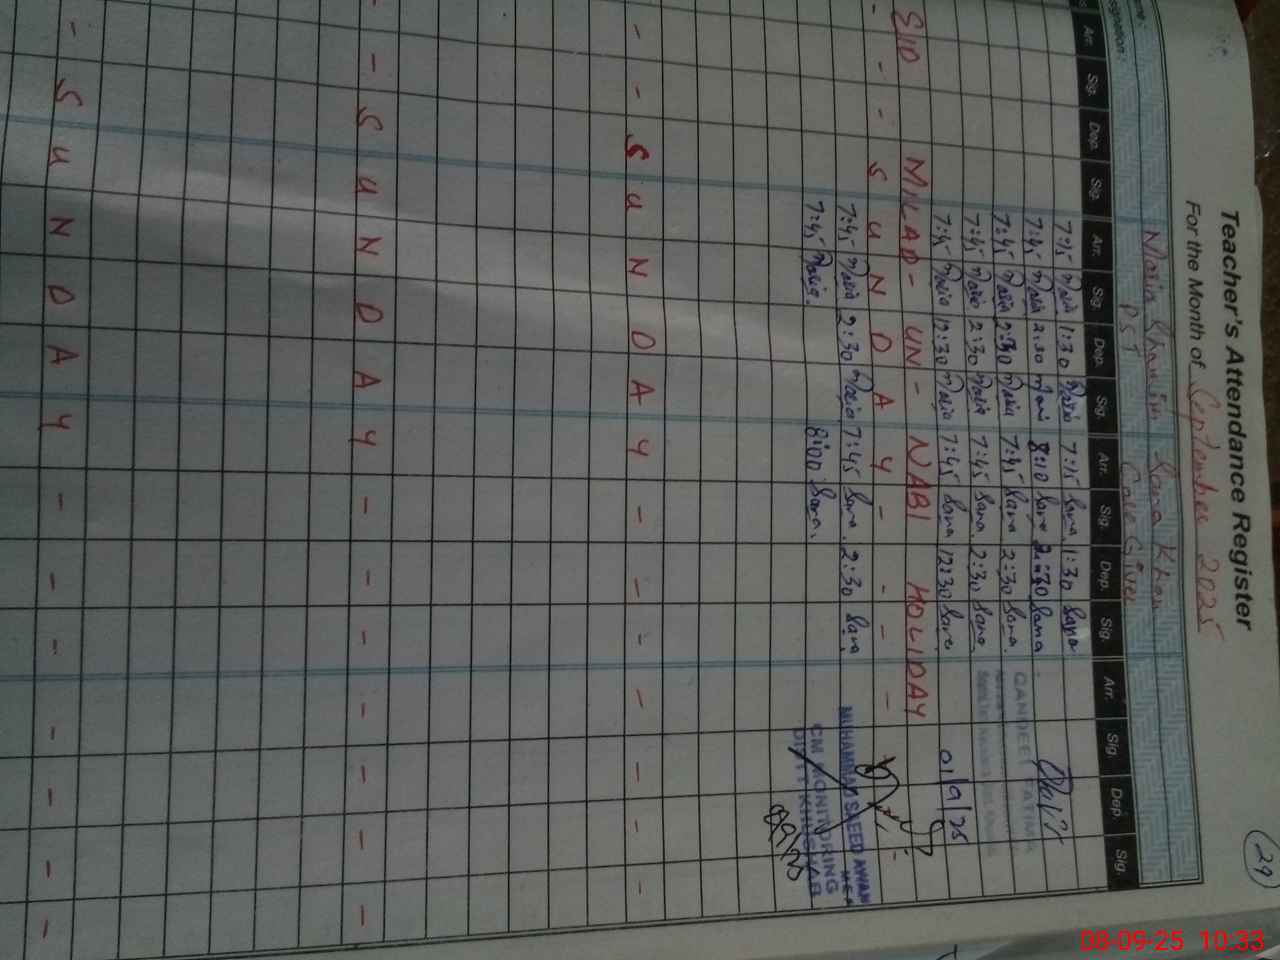 29
Teacher's Attendance Register
For the Month of September 2025
Name: Maria Sana Khan
Designation: PST Care Giver
Arr. Sig. Dep. Sig. Arr. Sig. Dep. Sig. Arr. Sig. Dep. Sig. Arr. Sig. Dep. Sig.
7:15 Maria 1:30 Maria 7:15 Sana 1:30 Sana
7:45 Maria 2:30 Maria 8:10 Sana 2:30 Sana
7:45 Maria 2:30 Maria 7:45 Sana 2:30 Sana
7:45 Maria 2:30 Maria 7:45 Sana 2:30 Sana
7:45 Maria 12:30 Maria 7:45 Sana 12:30 Sana 01/9/25
EID MILAD-UN-NABI HOLIDAY
- - - SUNDAY - - - -
7:45 Maria 2:30 Maria 7:45 Sana 2:30 Sana
7:45 Maria 8:00 Sana
MUHAMMAD SAEED AWAN
MEA
CM MONITORING
DISTT KHUSHAB
- - SUNDAY - - - - - - -
- - SUNDAY - - - - - - - -
- SUNDAY - - - - - - - -
08-09-25 10:33